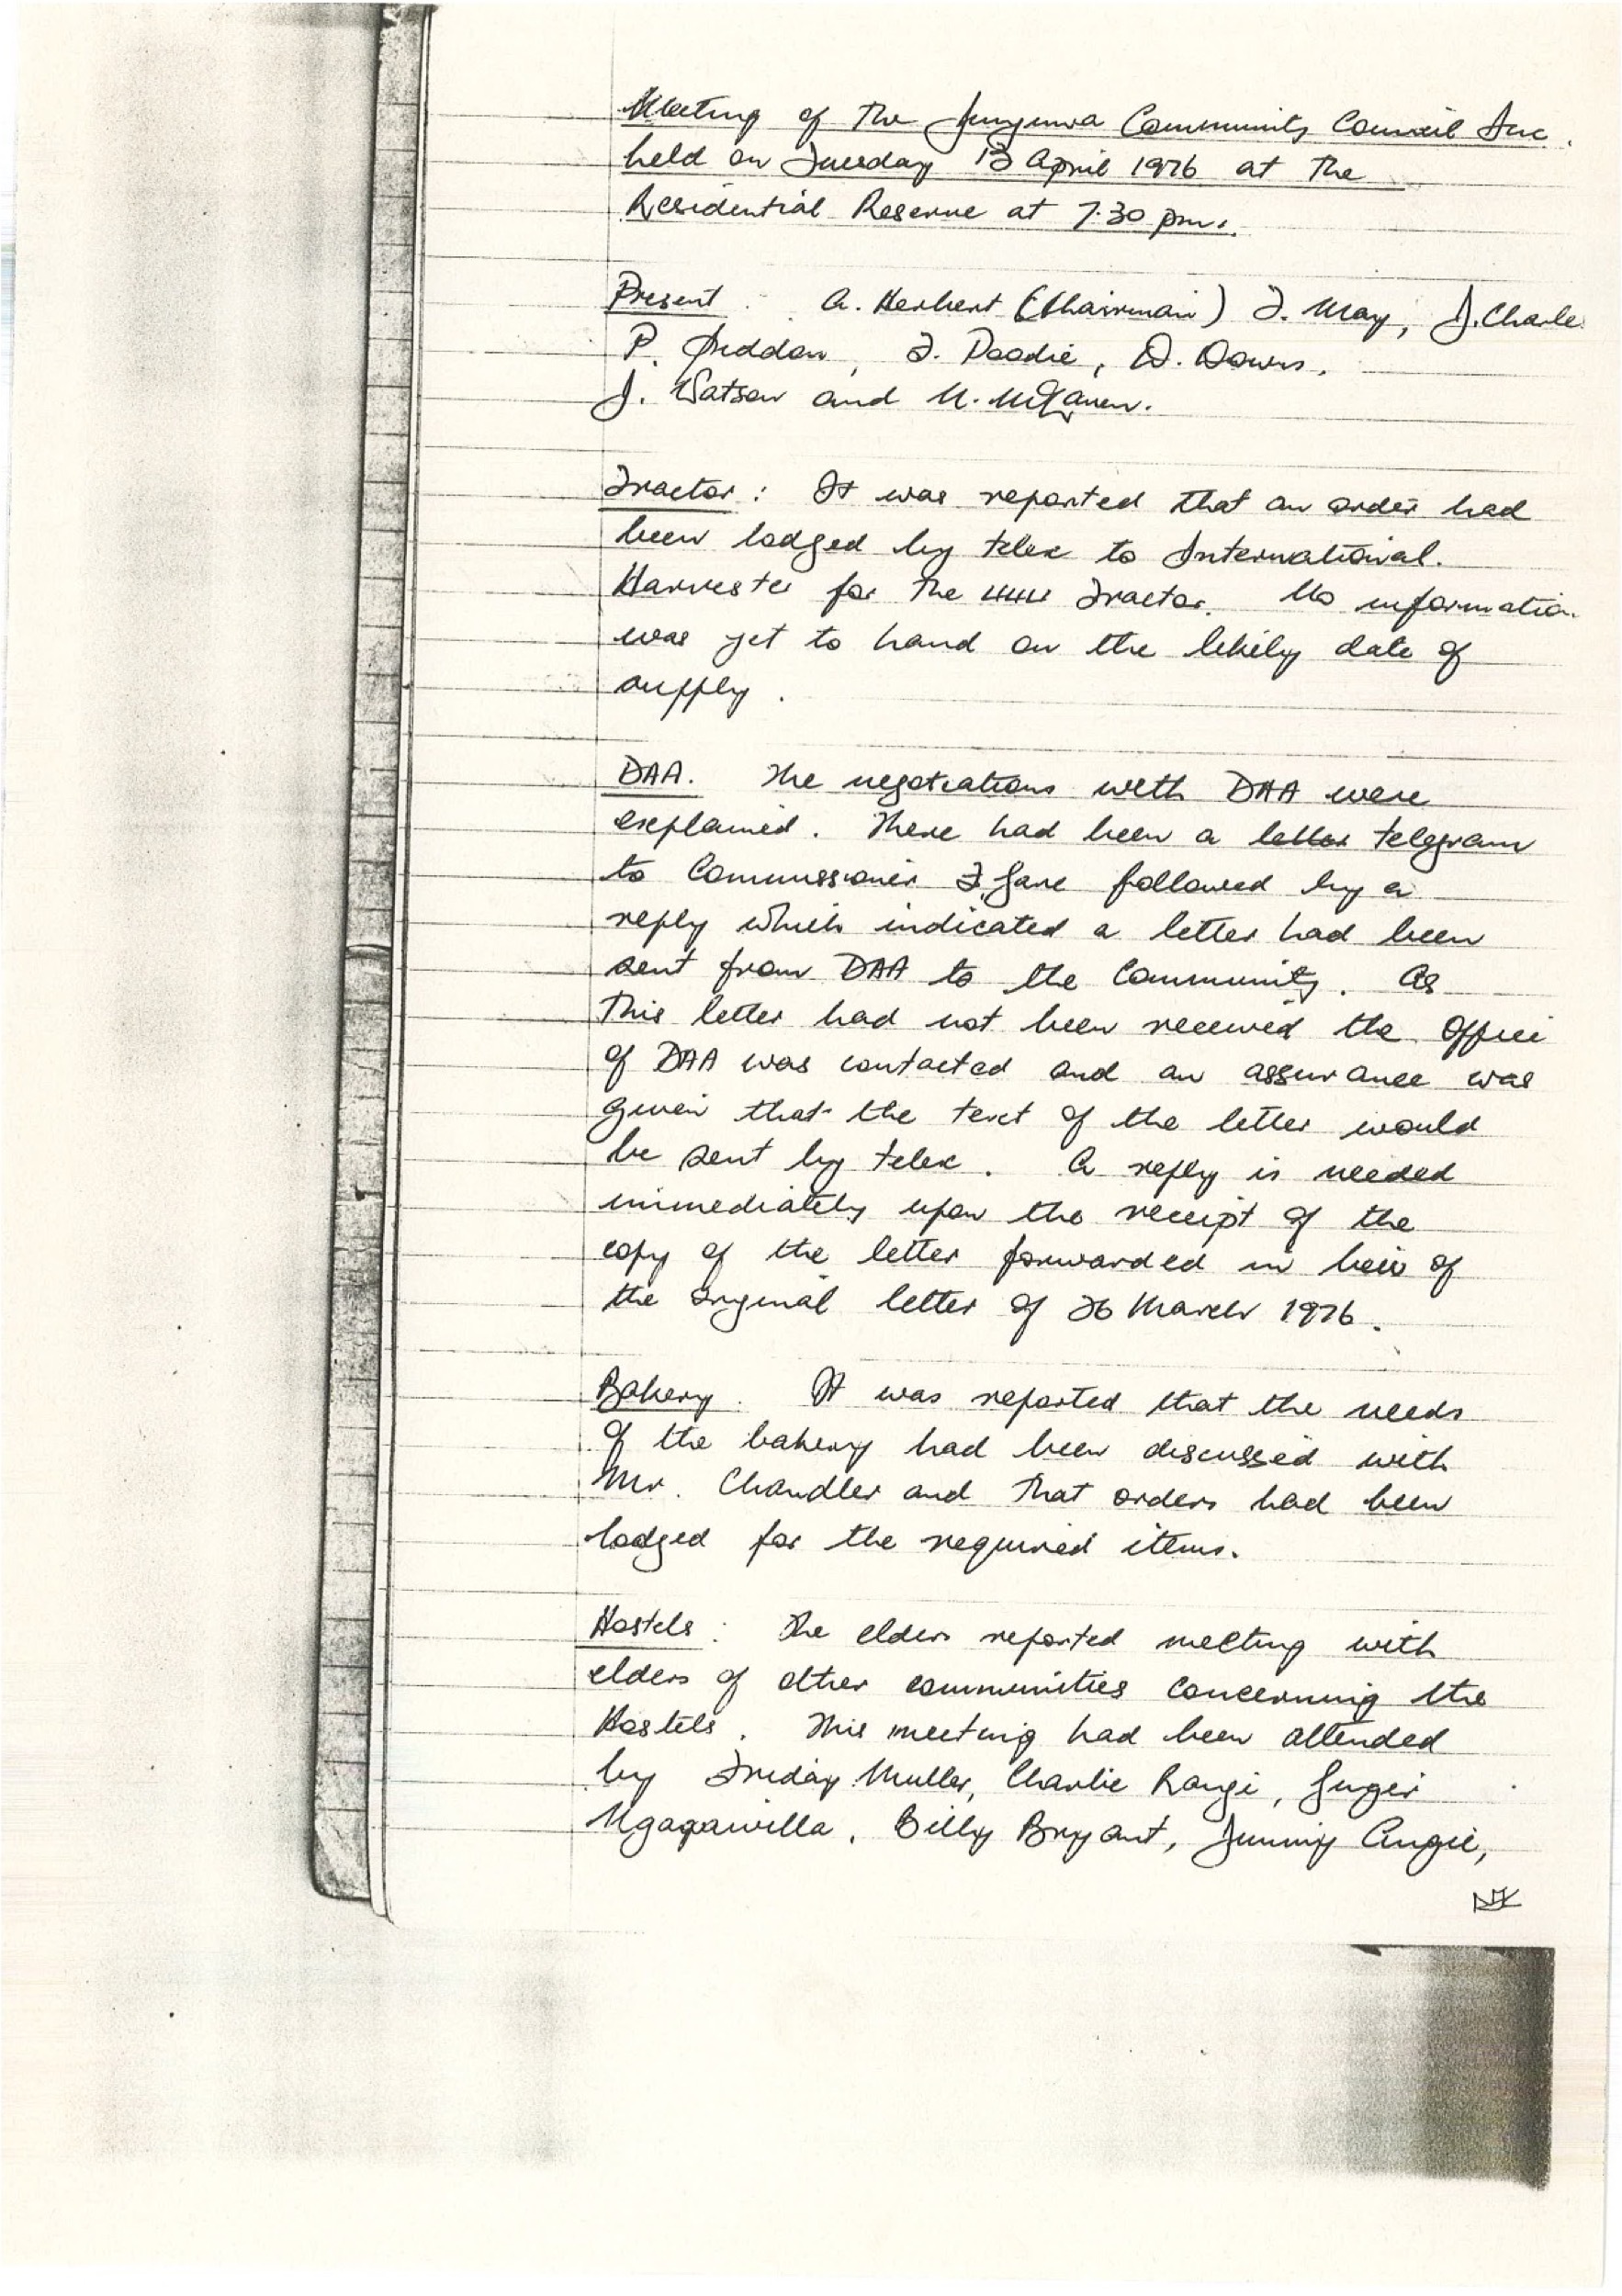 Meeting of The Community Council Inc.
held on Tuesday 13 April 1976 at the
Residential Reserve at 7.30 pm.
Present : A. Herbert (Chairman) J. May, J. Charle
P. , J. Doodie, D. Downs,
J. Watson and
Tractor : It was reported that an order had
been lodged by telex to International.
Harvester for the Tractor. No informatio
was yet to hand on the likely date of
supply.
DAA. The negotiations with DAA were
explained. There had been a letter telegram
to Commissioner followed by a
reply which indicated a letter had been
sent from DAA to the Community. As
This letter had not been received the office
of DAA was contacted and an assurance was
given that the text of the letter would
be sent by telex. A reply is needed
immediately upon the receipt of the
copy of the letter forwarded in leiu of
the original letter of 26 March 1976.
Bakery. It was reported that the needs
of the bakery had been discussed with
Mr. Chandler and that orders had been
lodged for the required items.
Hostels : The elders reported meeting with
elders of other communities concerning the
Hostels. This meeting had been attended
by Friday Muller, Charlie Rangi,
Billy Bryant, Jimmy Angie,